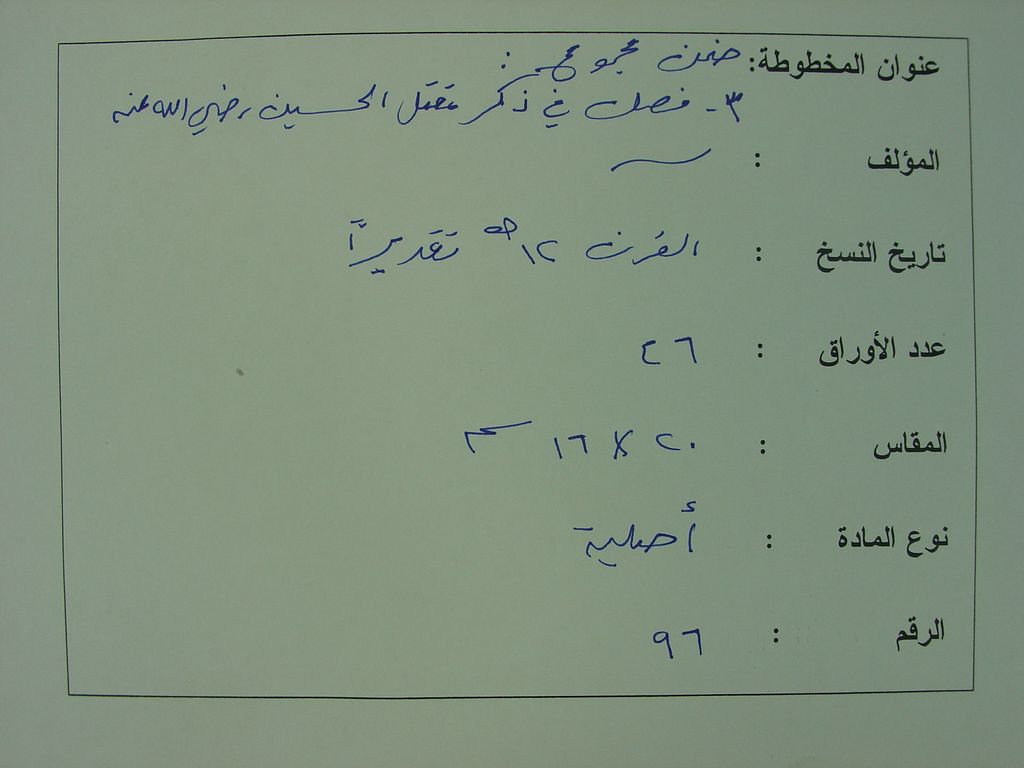 عنوان المخطوطة: ضمن مجموع :
٣- فصل في ذكر مقتل الحسين رضي الله عنه
المؤلف : ــ
تاريخ النسخ : القرن ١٢ هـ تقديراً
عدد الأوراق : ٤٦
المقاس : ٢٠ × ١٦ سم
نوع المادة : أصلية
الرقم : ٩٦